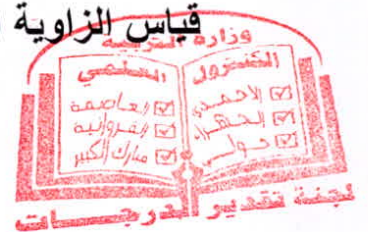 قياس الزاوية
وزارة التربية
الكنترول العلمي
الأحمدي
الجهراء
حولي
العاصمة
الفروانية
مبارك الكبير
لجنة تقدير الدرجات